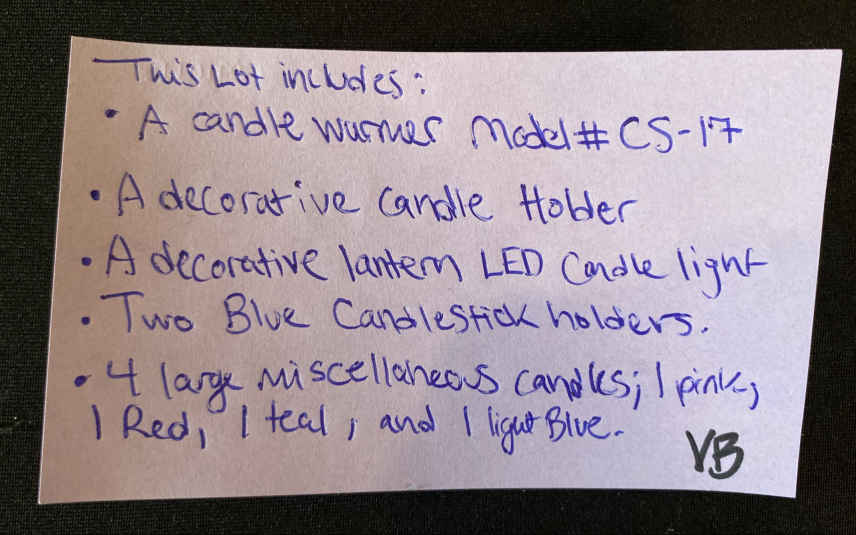 This Lot includes:
• A candle warmer Model# CS-17
• A decorative candle Holder
• A decorative lantern LED Candle light
• Two Blue Candlestick holders.
• 4 large miscellaneous candles; 1 pink,
1 Red, 1 teal, and 1 light Blue.
VB